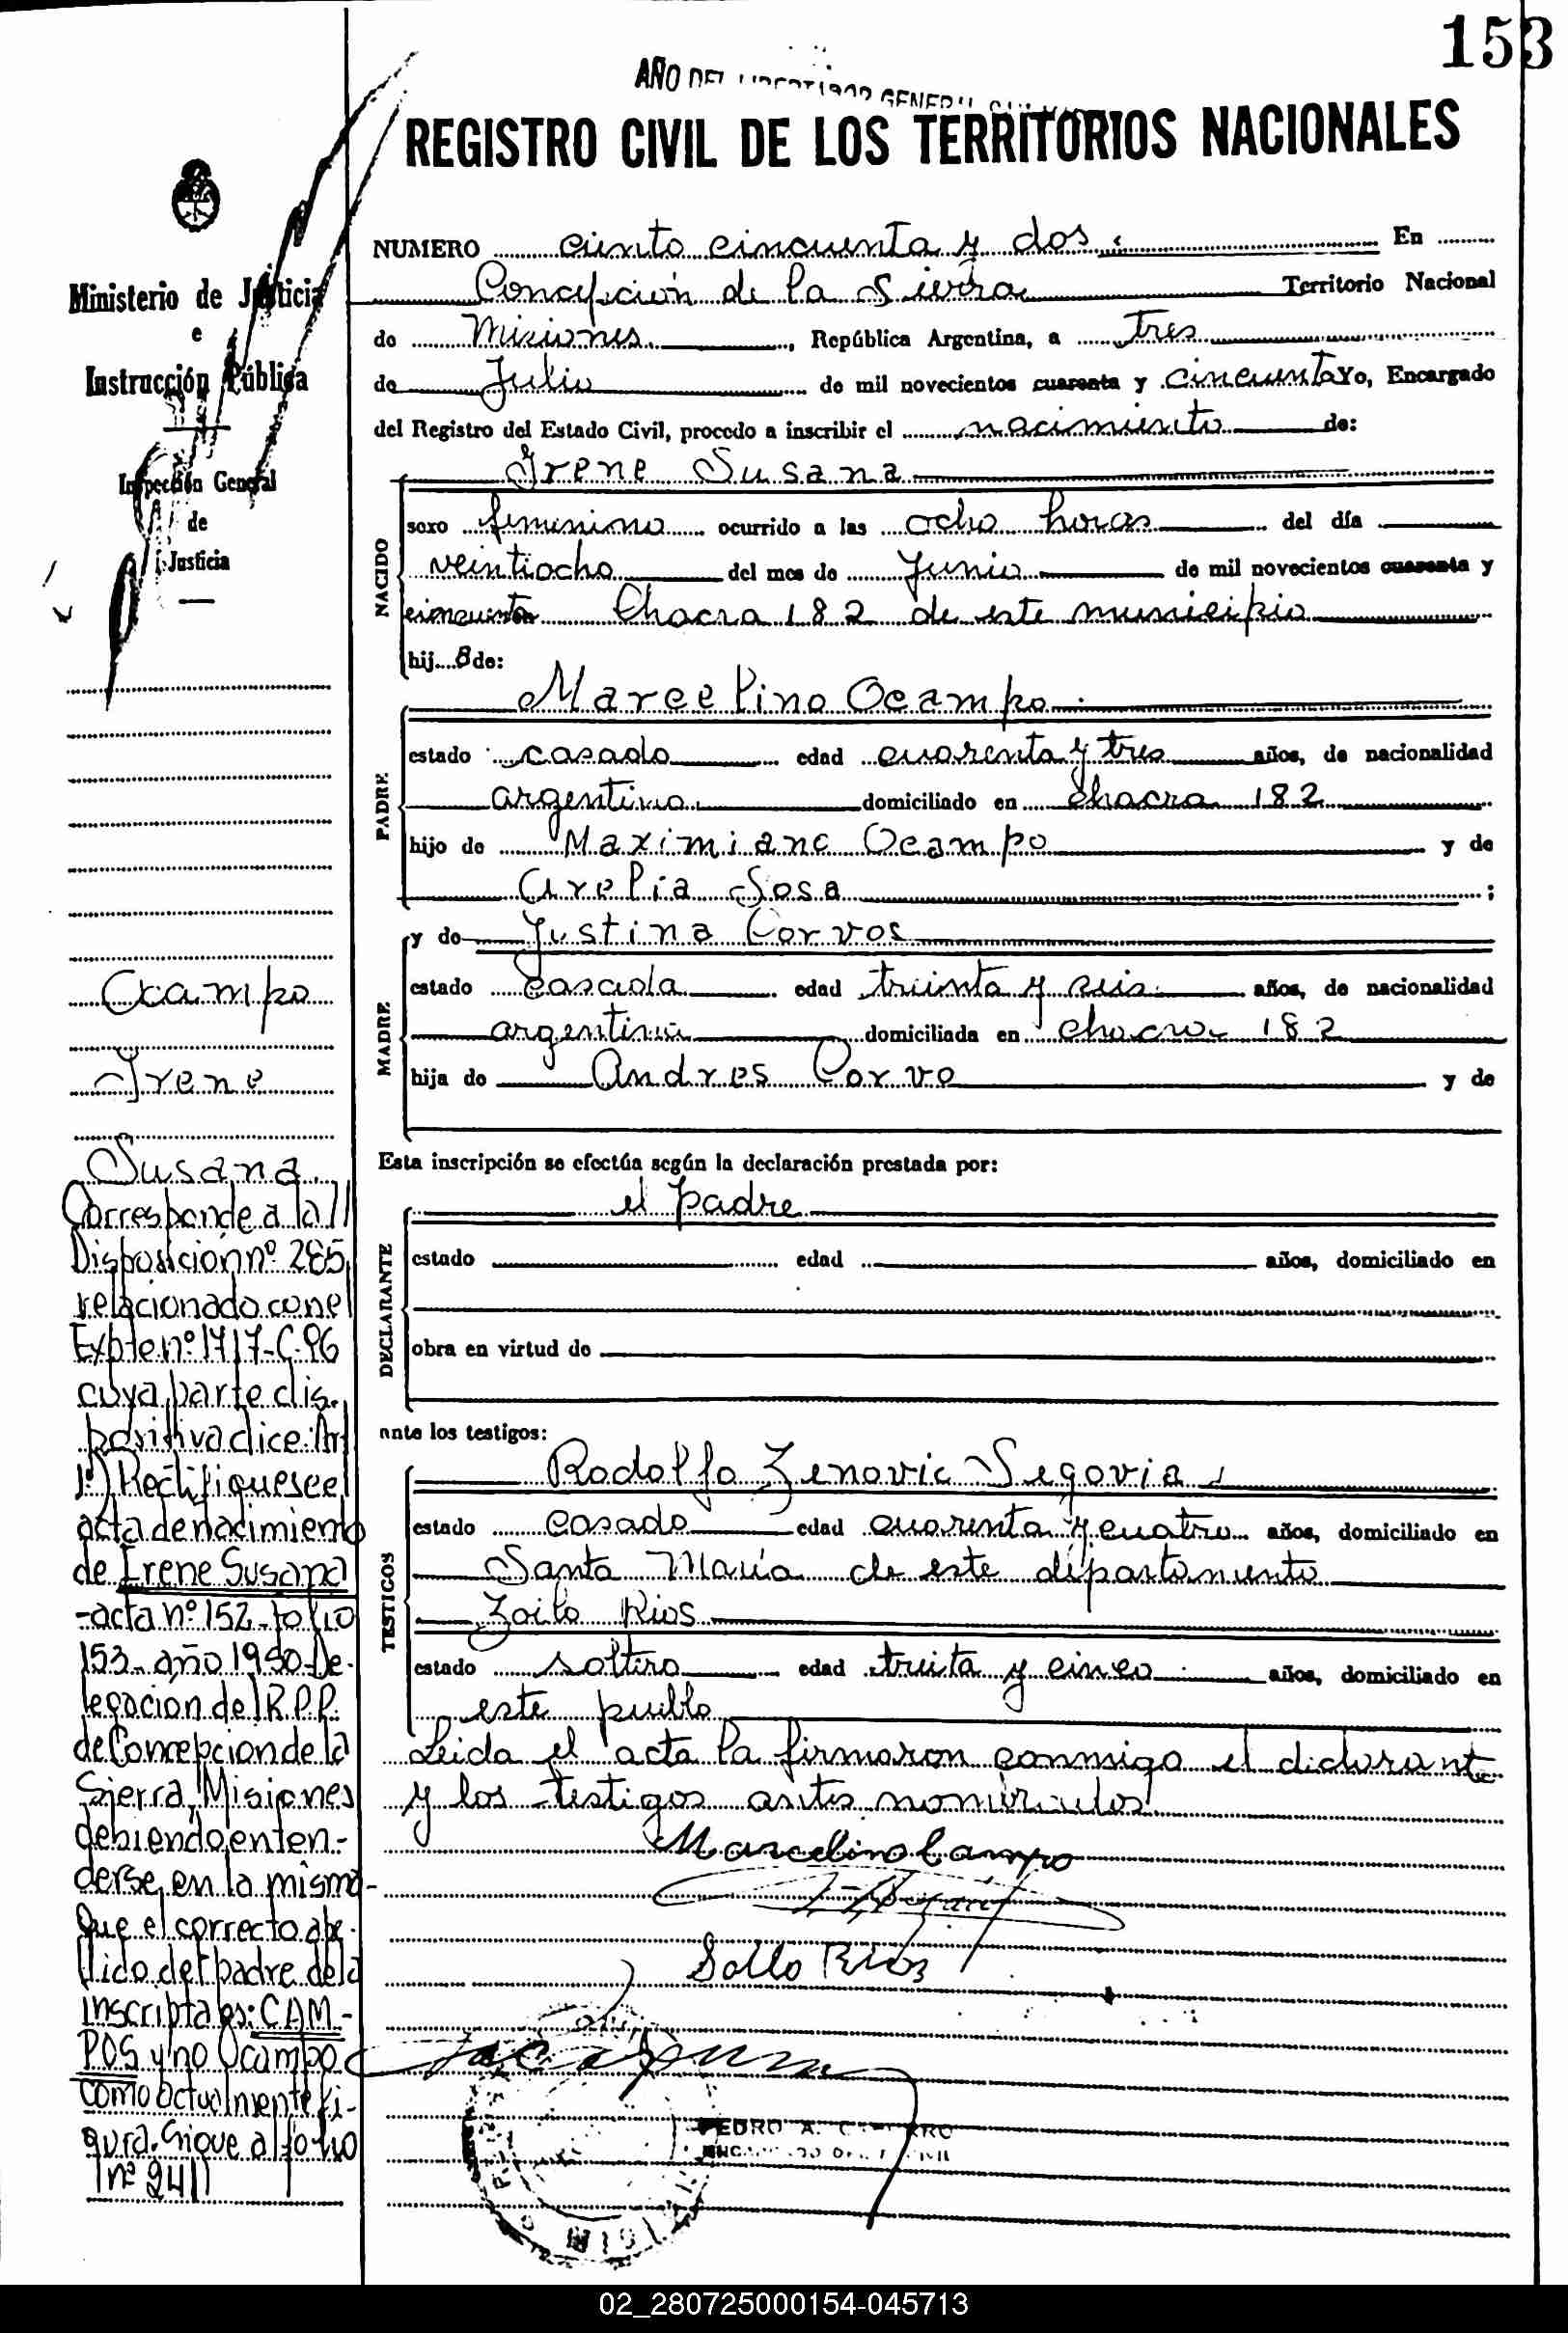 153
AÑO DEL LIBERTADOR GENERAL
REGISTRO CIVIL DE LOS TERRITORIOS NACIONALES
Ministerio de Justicia
e
Instrucción Pública
Inspección General
de
Justicia
NUMERO ciento cincuenta y dos. En
Concepción de la Sierra Territorio Nacional
de Misiones, República Argentina, a tres
de Julio de mil novecientos cuarenta y cincuenta Yo, Encargado
del Registro del Estado Civil, procedo a inscribir el nacimiento de:
NACIDO
Irene Susana
sexo femenino ocurrido a las ocho horas del día
veintiocho del mes de Junio de mil novecientos cuarenta y
cincuenta Chacra 182 de este municipio
hij a de:
PADRE
Marcelino Ocampo
estado casado edad cuarenta y tres años, de nacionalidad
argentina domiciliado en chacra 182
hijo de Maximiano Ocampo y de
Arelia Sosa ;
MADRE
y de Justina Corvos
estado casada edad treinta y seis años, de nacionalidad
argentina domiciliada en chacra 182
hija de Andres Corvo y de
Esta inscripción se efectúa según la declaración prestada por:
DECLARANTE
el padre
estado edad años, domiciliado en
obra en virtud de
ante los testigos:
TESTIGOS
Rodolfo Zenovio Segovia
estado casado edad cuarenta y cuatro años, domiciliado en
Santa María de este departamento
Zoilo Rios
estado soltero edad treita y cinco años, domiciliado en
este pueblo
Leida el acta la firmaron conmigo el diclarante
y los testigos antes nombrados
Marcelino Campo
Soilo Rios
PEDRO A.
Ocampo
Irene
Susana
Corresponde a la //
Disposición nº 285
relacionado con el
Expte nº 1717-C-96
cuya parte dis-
positiva dice: Art
1º) Rectifiquese el
acta de nacimiento
de Irene Susana
-acta nº 152-folio
153-año 1950-De-
legación del R.P.P.
de Concepcion de la
Sierra, Misiones
debiendo enten-
derse en la misma-
que el correcto ape-
llido del padre de la
inscripta es: CAM-
POS y no Ocampo
como actualmente fi-
gura. Sigue al folio
nº 241
02_280725000154-045713